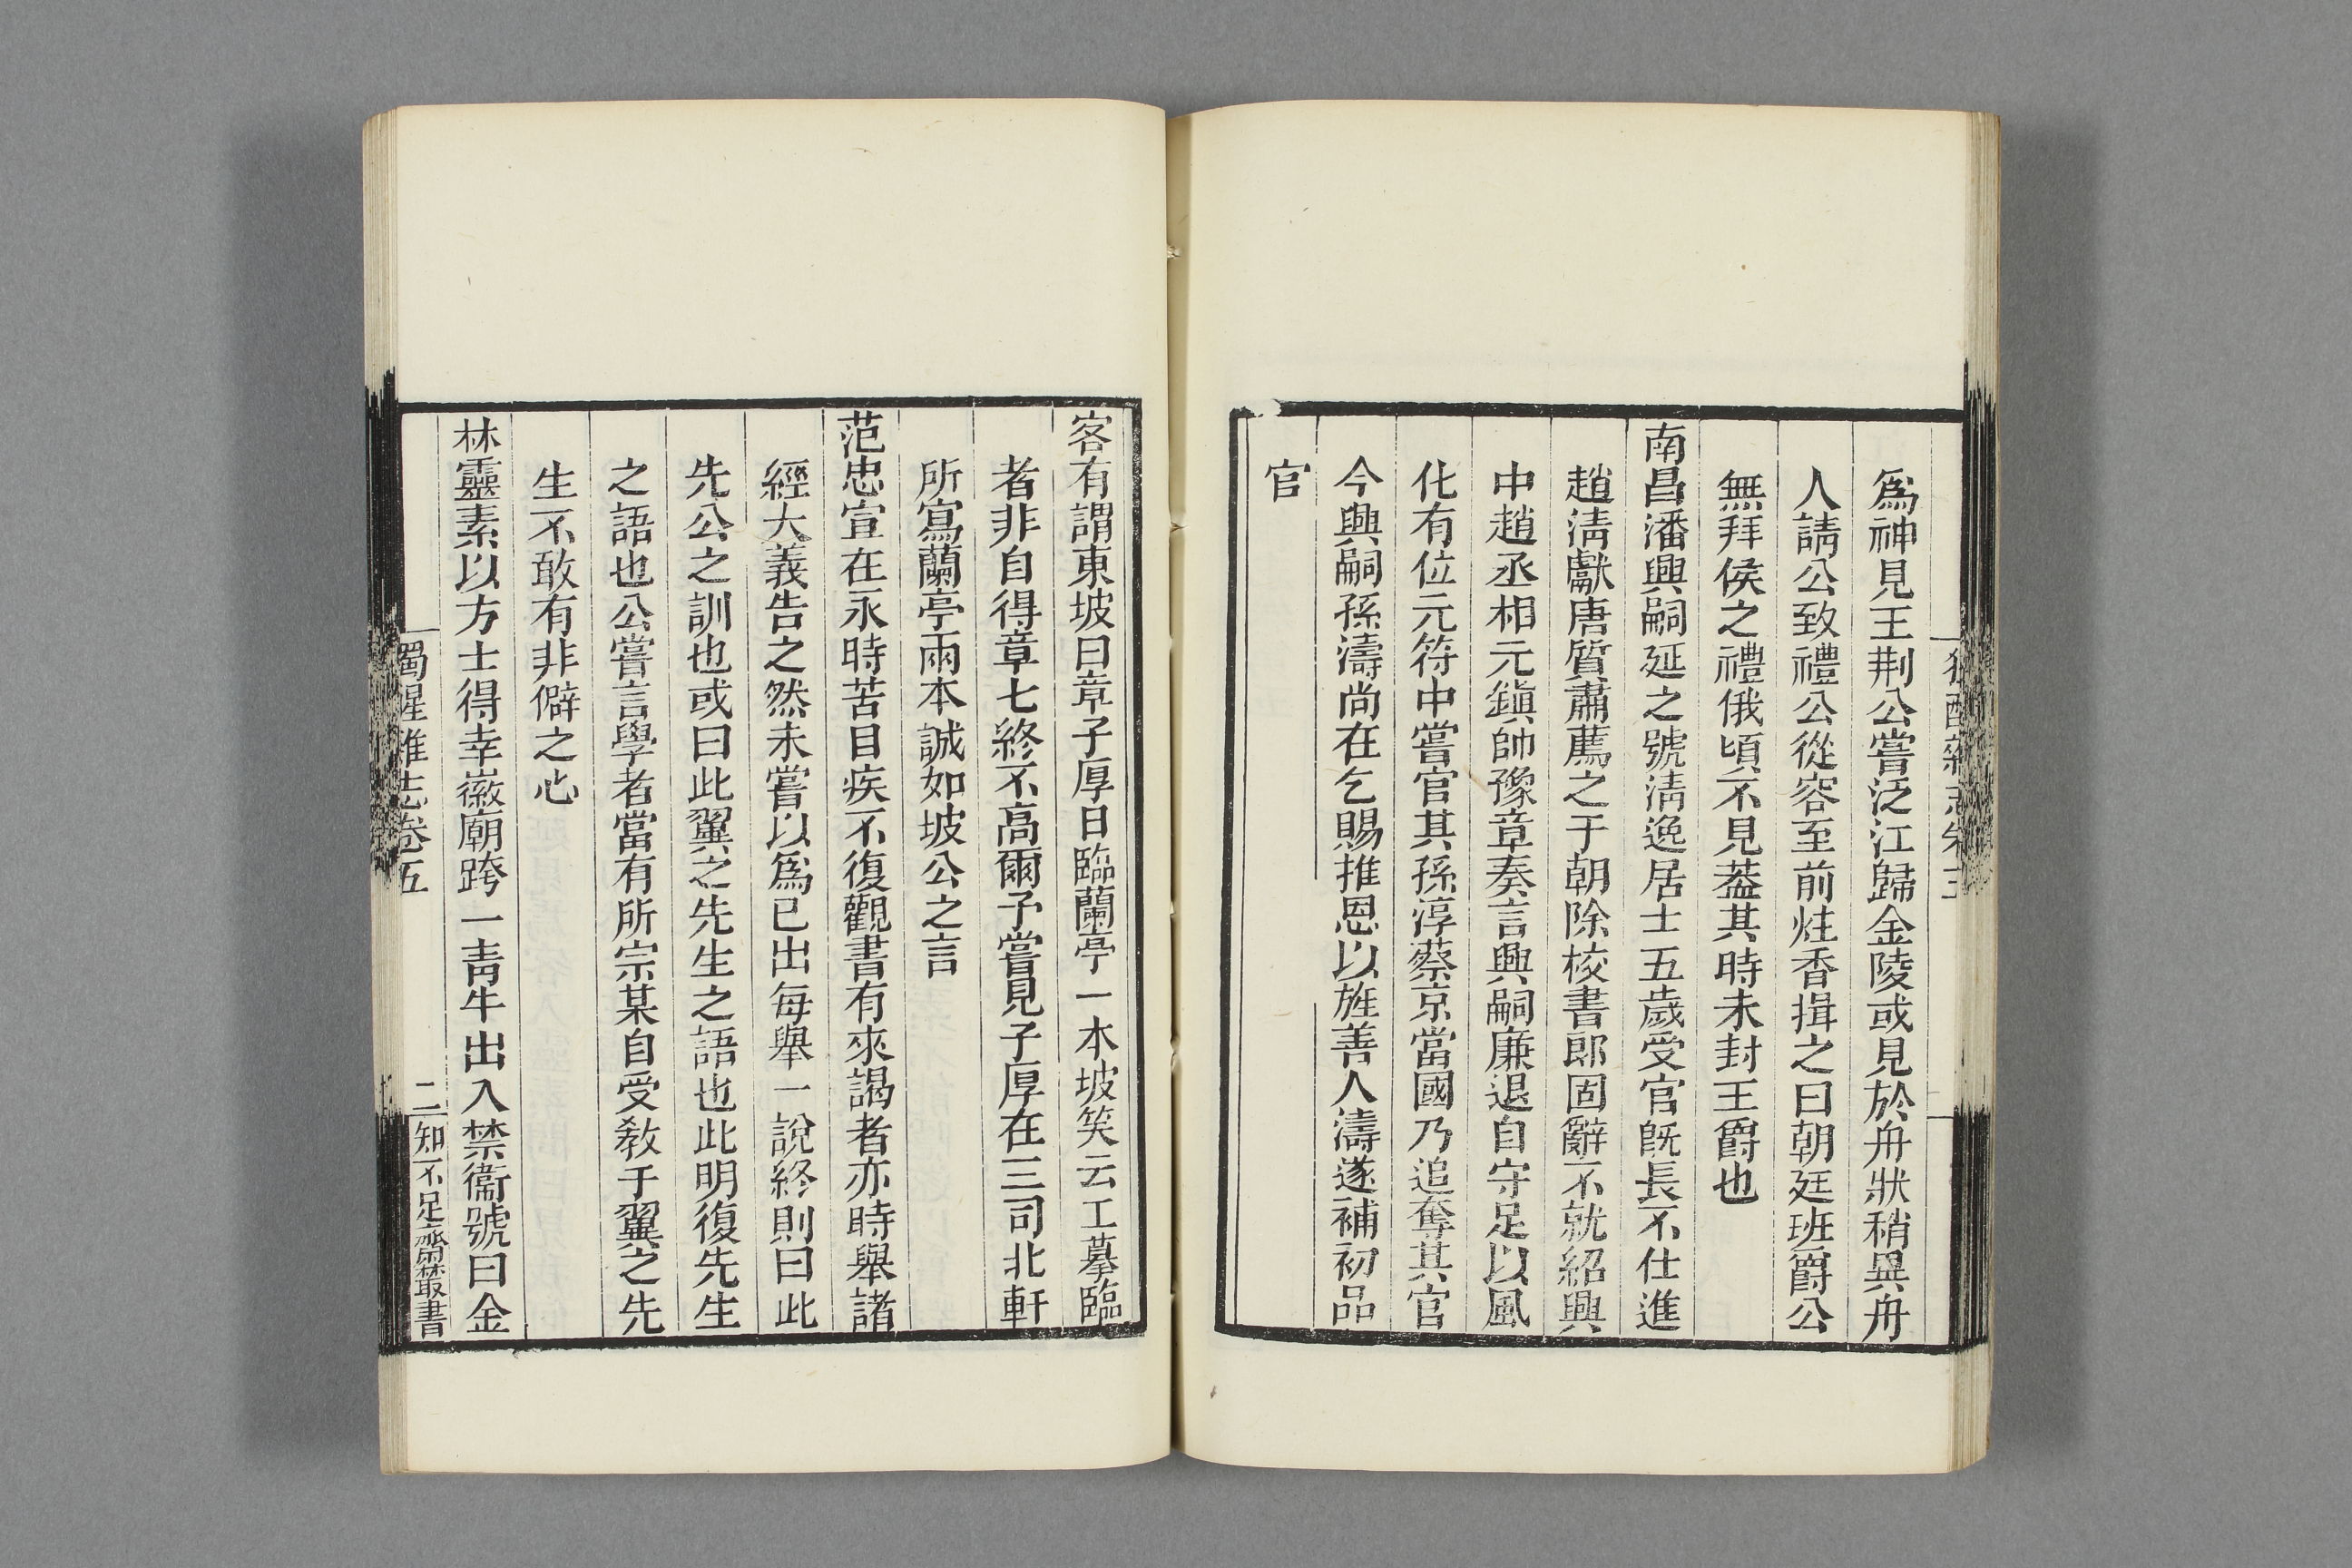 爲神見王荆公嘗泛江歸金陵或見於舟狀稍異舟
人請公致禮公從容至前炷香揖之曰朝廷班爵公
無拜侯之禮俄頃不見葢其時未封王爵也
南昌潘興嗣延之號淸逸居士五歲受官旣長不仕進
趙淸獻唐質肅薦之于朝除校書郎固辭不就紹興
中趙丞相元鎭帥豫章奏言興嗣廉退自守足以風
化有位元符中嘗官其孫淳蔡京當國乃追奪其官
今興嗣孫濤尚在乞賜推恩以旌善人濤遂補初品
官
客有謂東坡曰章子厚日臨蘭亭一本坡笑云工摹臨
者非自得章七終不高爾予嘗見子厚在三司北軒
所寫蘭亭兩本誠如坡公之言
范忠宣在永時苦目疾不復觀書有來謁者亦時舉諸
經大義告之然未嘗以爲已出每舉一說終則曰此
先公之訓也或曰此翼之先生之語也此明復先生
之語也公嘗言學者當有所宗某自受敎于翼之先
生不敢有非僻之心
林靈素以方士得幸徽廟跨一靑牛出入禁衞號曰金
獨醒雜志卷五
二
知不足齋叢書